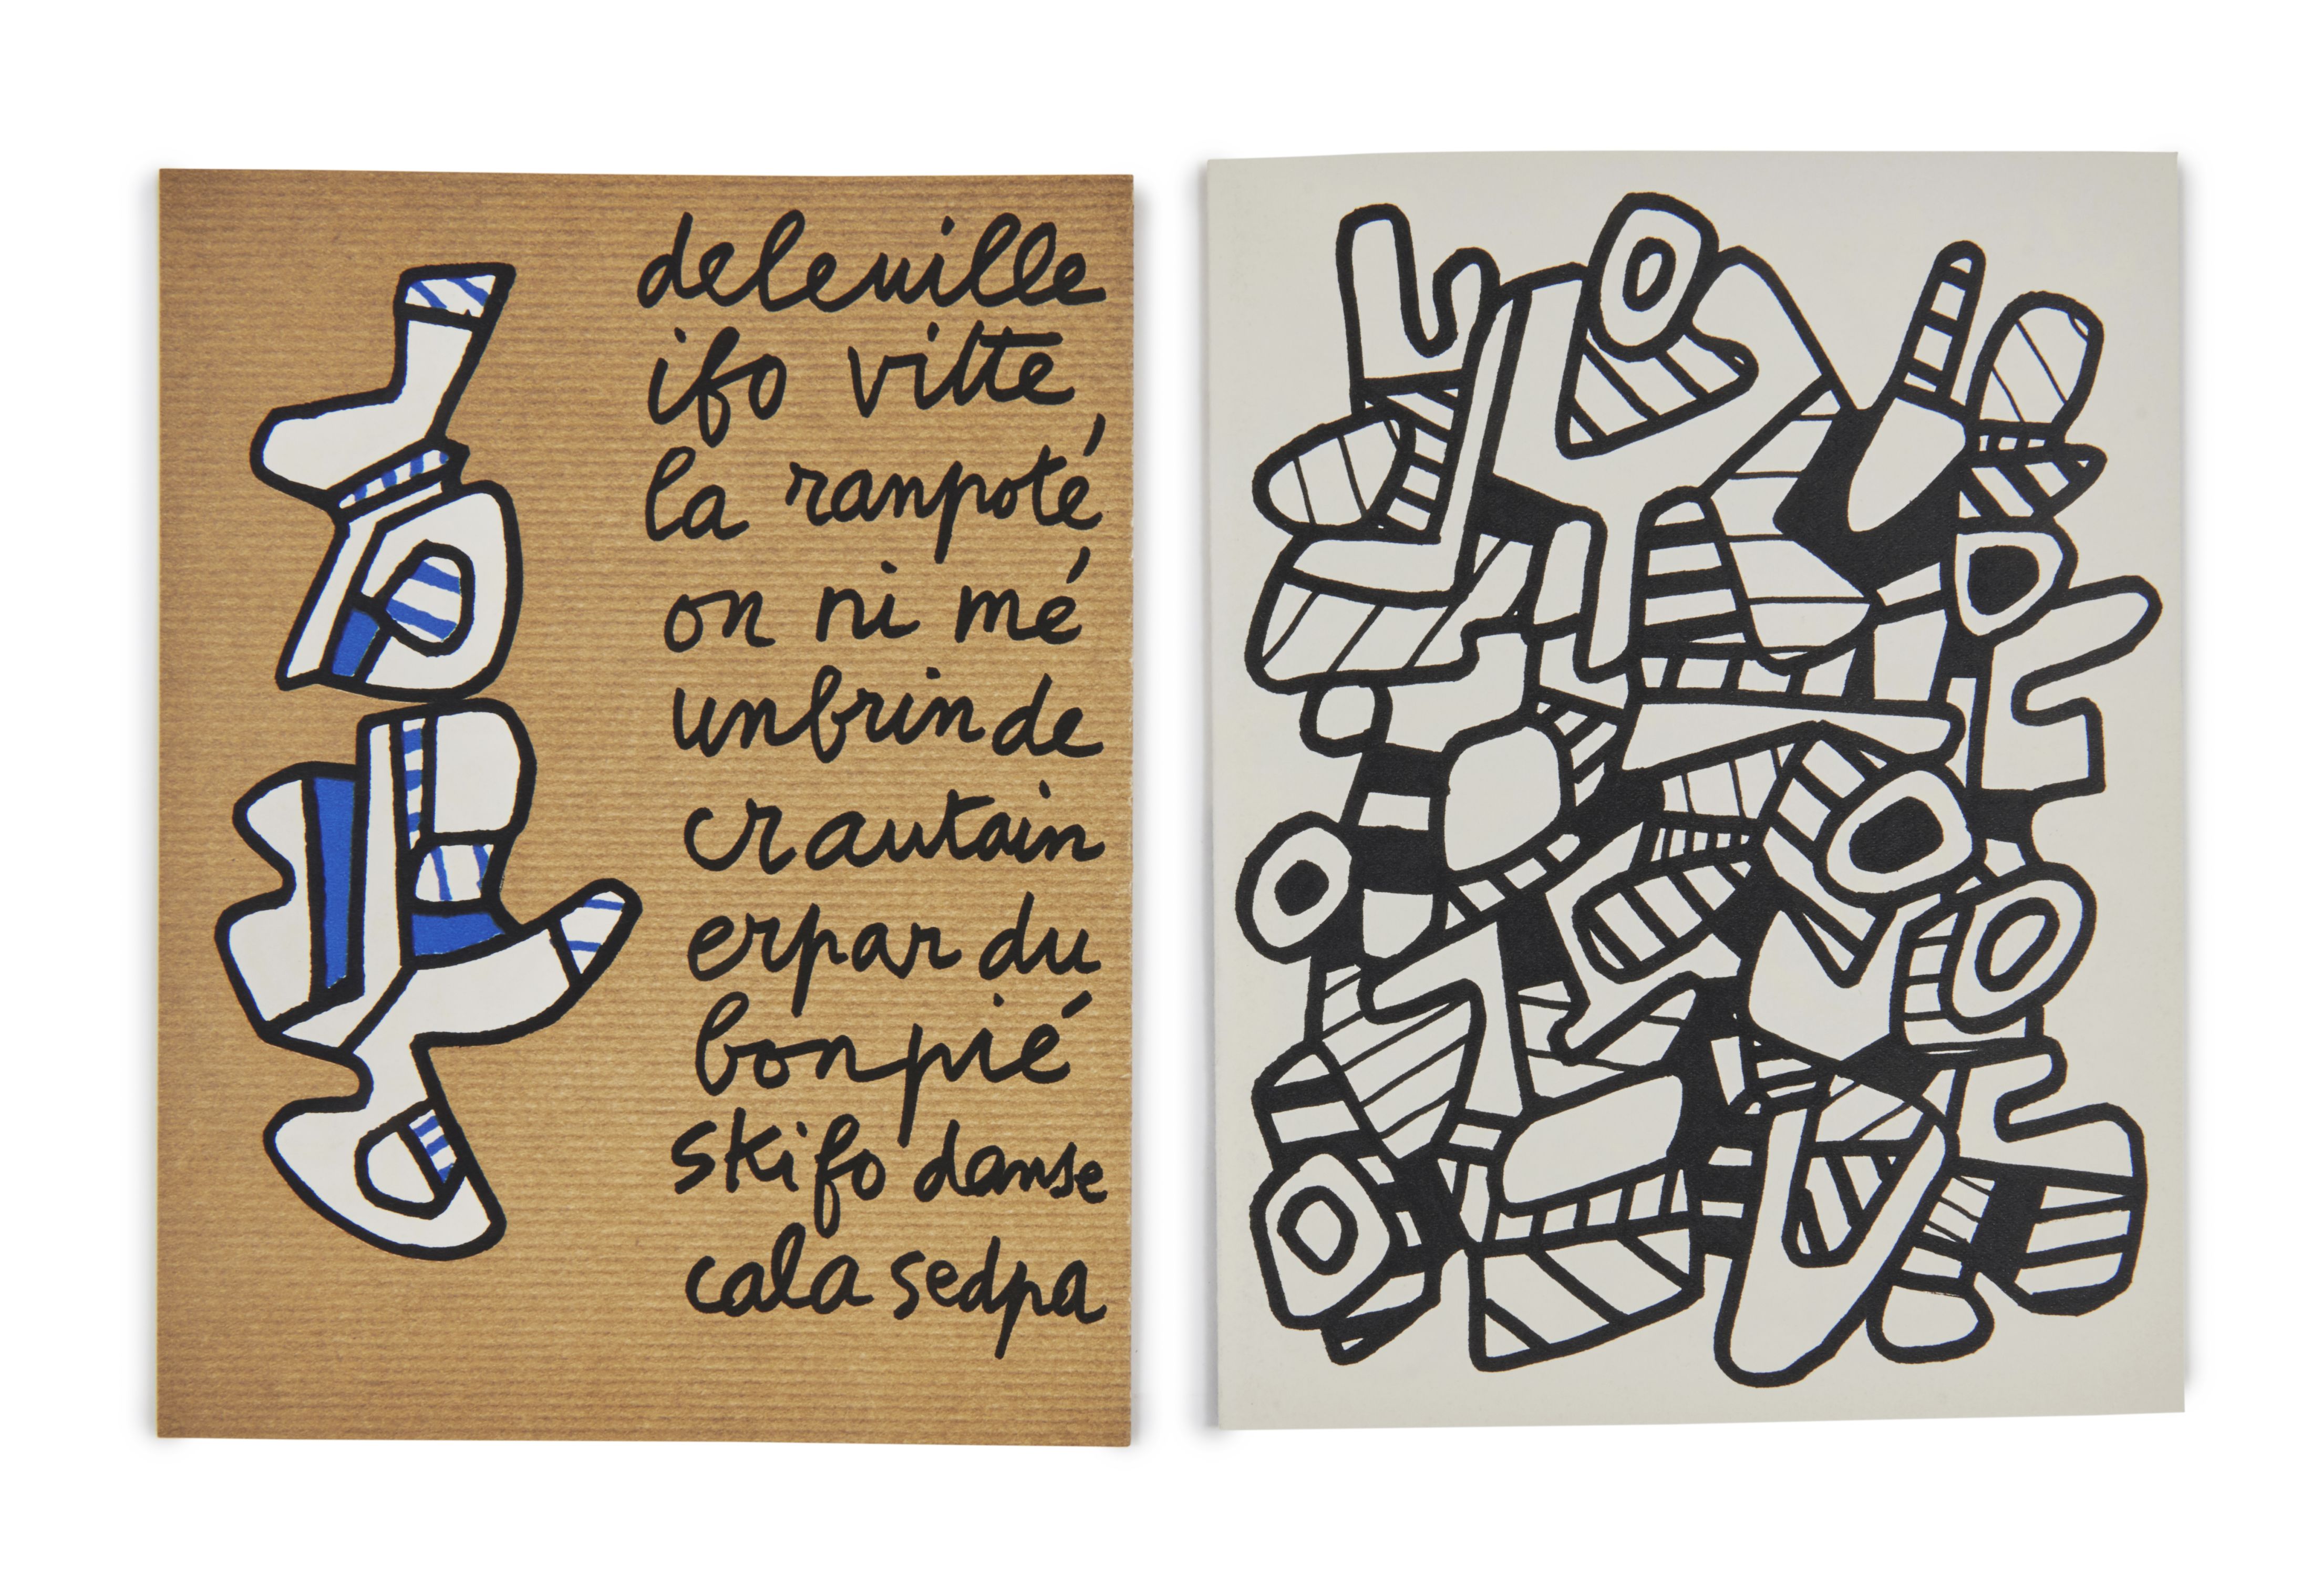 deleuille
ifo vitte
la ranpoté
on ni mé
unbrinde
crautain
erpar du
bonpié
skifo danse
cala sedpa